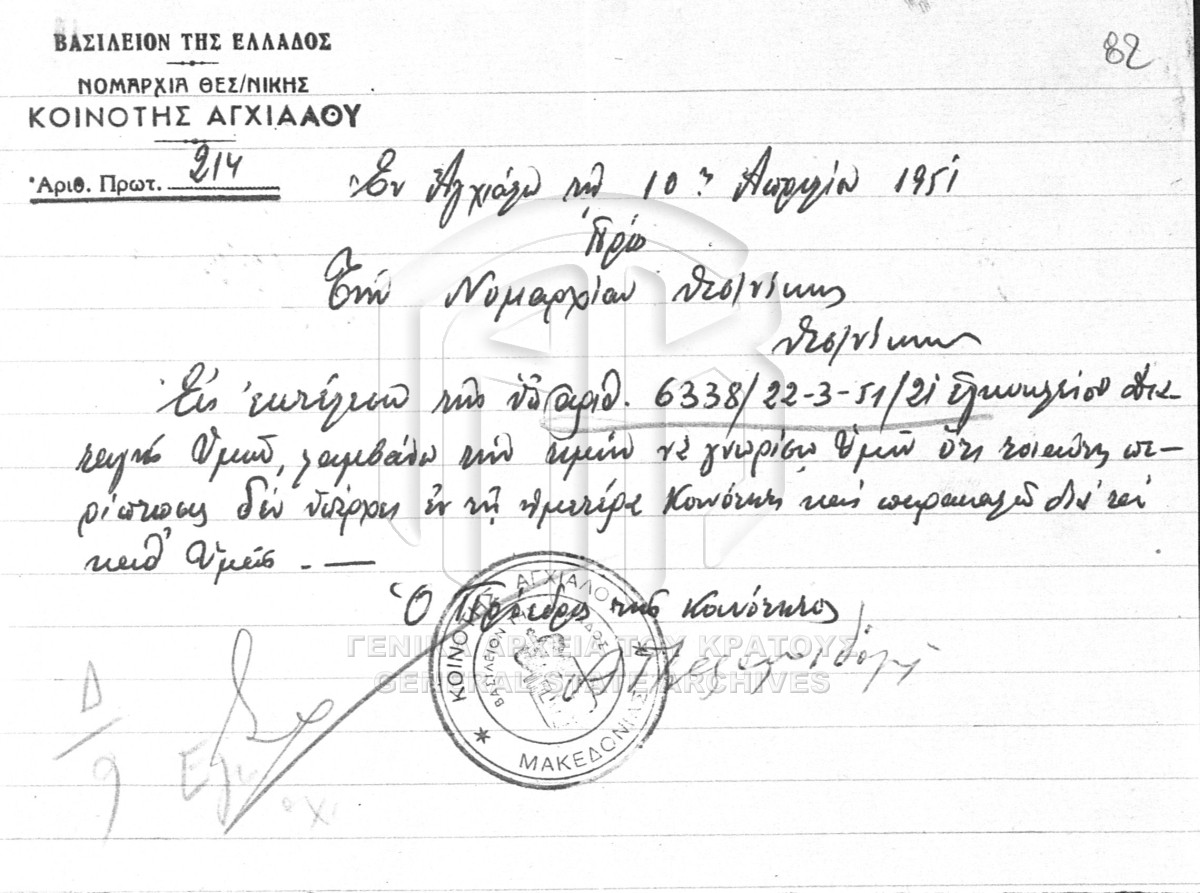 ΒΑΣΙΛΕΙΟΝ ΤΗΣ ΕΛΛΑΔΟΣ
82
ΝΟΜΑΡΧΙΑ ΘΕΣ/ΝΙΚΗΣ
ΚΟΙΝΟΤΗΣ ΑΓΧΙΑΛΟΥ
Ἀριθ. Πρωτ. 214
Ἐν Ἀγχιάλῳ τῇ 10ῃ Ἀπριλίου 1951
Πρὸς
Τὴν Νομαρχίαν Θεσ/νίκης
Θεσ/νίκην
Εἰς ἐκτέλεσιν τῆς ὑπ' ἀριθ. 6338/22-3-51/21 ἐγκυκλίου Δια-
ταγῆς Ὑμῶν, λαμβάνω τὴν τιμὴν νὰ γνωρίσω Ὑμῖν ὅτι τοιαύτη πε-
ρίπτωσις δὲν ὑπάρχει ἐν τῇ ἡμετέρᾳ Κοινότητι καὶ παρακαλῶ διὰ τὰ
καθ' Ὑμᾶς . —
Ὁ Πρόεδρος τῆς Κοινότητος
ΚΟΙΝΟΤΗΣ ΑΓΧΙΑΛΟΥ
ΒΑΣΙΛΕΙΟΝ ΤΗΣ ΕΛΛΑΔΟΣ
ΜΑΚΕΔΟΝΙΑΣ
ΓΕΝΙΚΑ ΑΡΧΕΙΑ ΤΟΥ ΚΡΑΤΟΥΣ
GENERAL STATE ARCHIVES
Δ/9